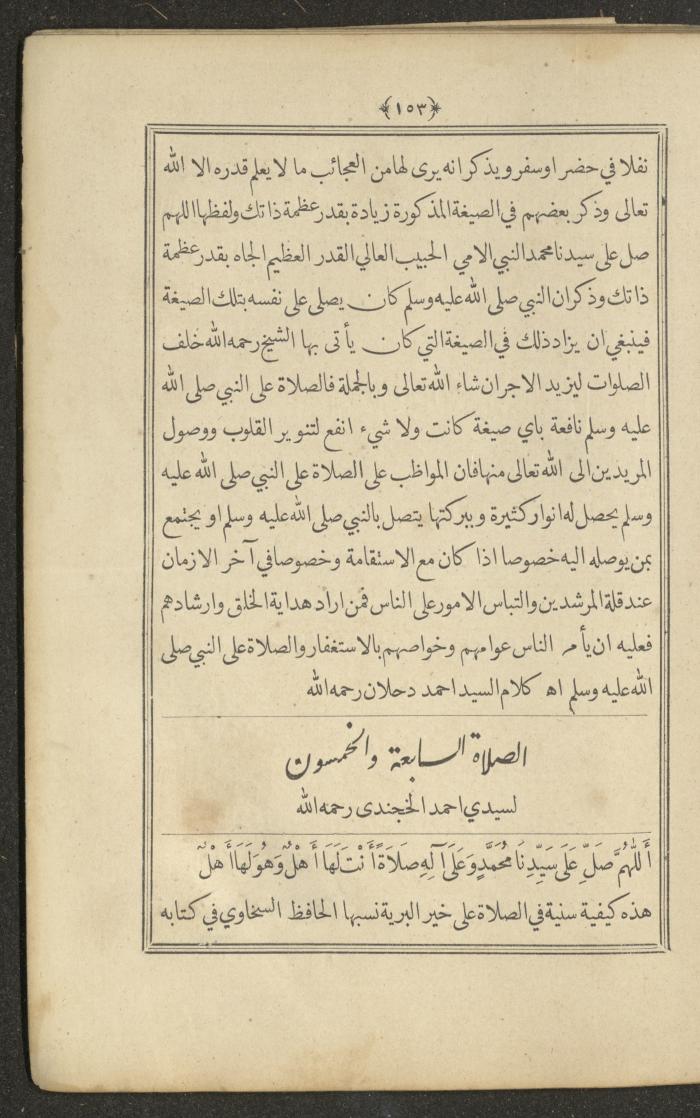 ﴿١٥٣﴾
نفلا في حضر او سفر ويذكر انه يرى لها من العجائب ما لا يعلم قدره الا الله
تعالى وذكر بعضهم في الصيغة المذكورة زيادة بقدر عظمة ذاتك ولفظها اللهم
صل على سيدنا محمد النبي الامي الحبيب العالي القدر العظيم الجاه بقدر عظمة
ذاتك وذكر ان النبي صلى الله عليه وسلم كان يصلى على نفسه بتلك الصيغة
فينبغي ان يزاد ذلك في الصيغة التي كان يأتى بها الشيخ رحمه الله خلف
الصلوات ليزيد الاجر ان شاء الله تعالى وبالجملة فالصلاة على النبي صلى الله
عليه وسلم نافعة باي صيغة كانت ولا شيء انفع لتنوير القلوب ووصول
المريدين الى الله تعالى منها فان المواظب على الصلاة على النبي صلى الله عليه
وسلم يحصل له انوار كثيرة وببركتها يتصل بالنبي صلى الله عليه وسلم او يجتمع
بمن يوصله اليه خصوصا اذا كان مع الاستقامة وخصوصا في آخر الازمان
عند قلة المرشدين والتباس الامور على الناس فمن اراد هداية الخلق وارشادهم
فعليه ان يأمر الناس عوامهم وخواصهم بالاستغفار والصلاة على النبي صلى
الله عليه وسلم اه كلام السيد احمد دحلان رحمه الله
الصلاة السابعة والخمسون
لسيدي احمد الخجندى رحمه الله
أَللّٰهُمَّ صَلِّ عَلَى سَيِّدِنَا مُحَمَّدٍ وَعَلَى آلِهِ صَلَاةً أَنْتَ لَهَا أَهْلٌ وَهُوَ لَهَا أَهْلٌ
هذه كيفية سنية في الصلاة على خير البرية نسبها الحافظ السخاوي في كتابه